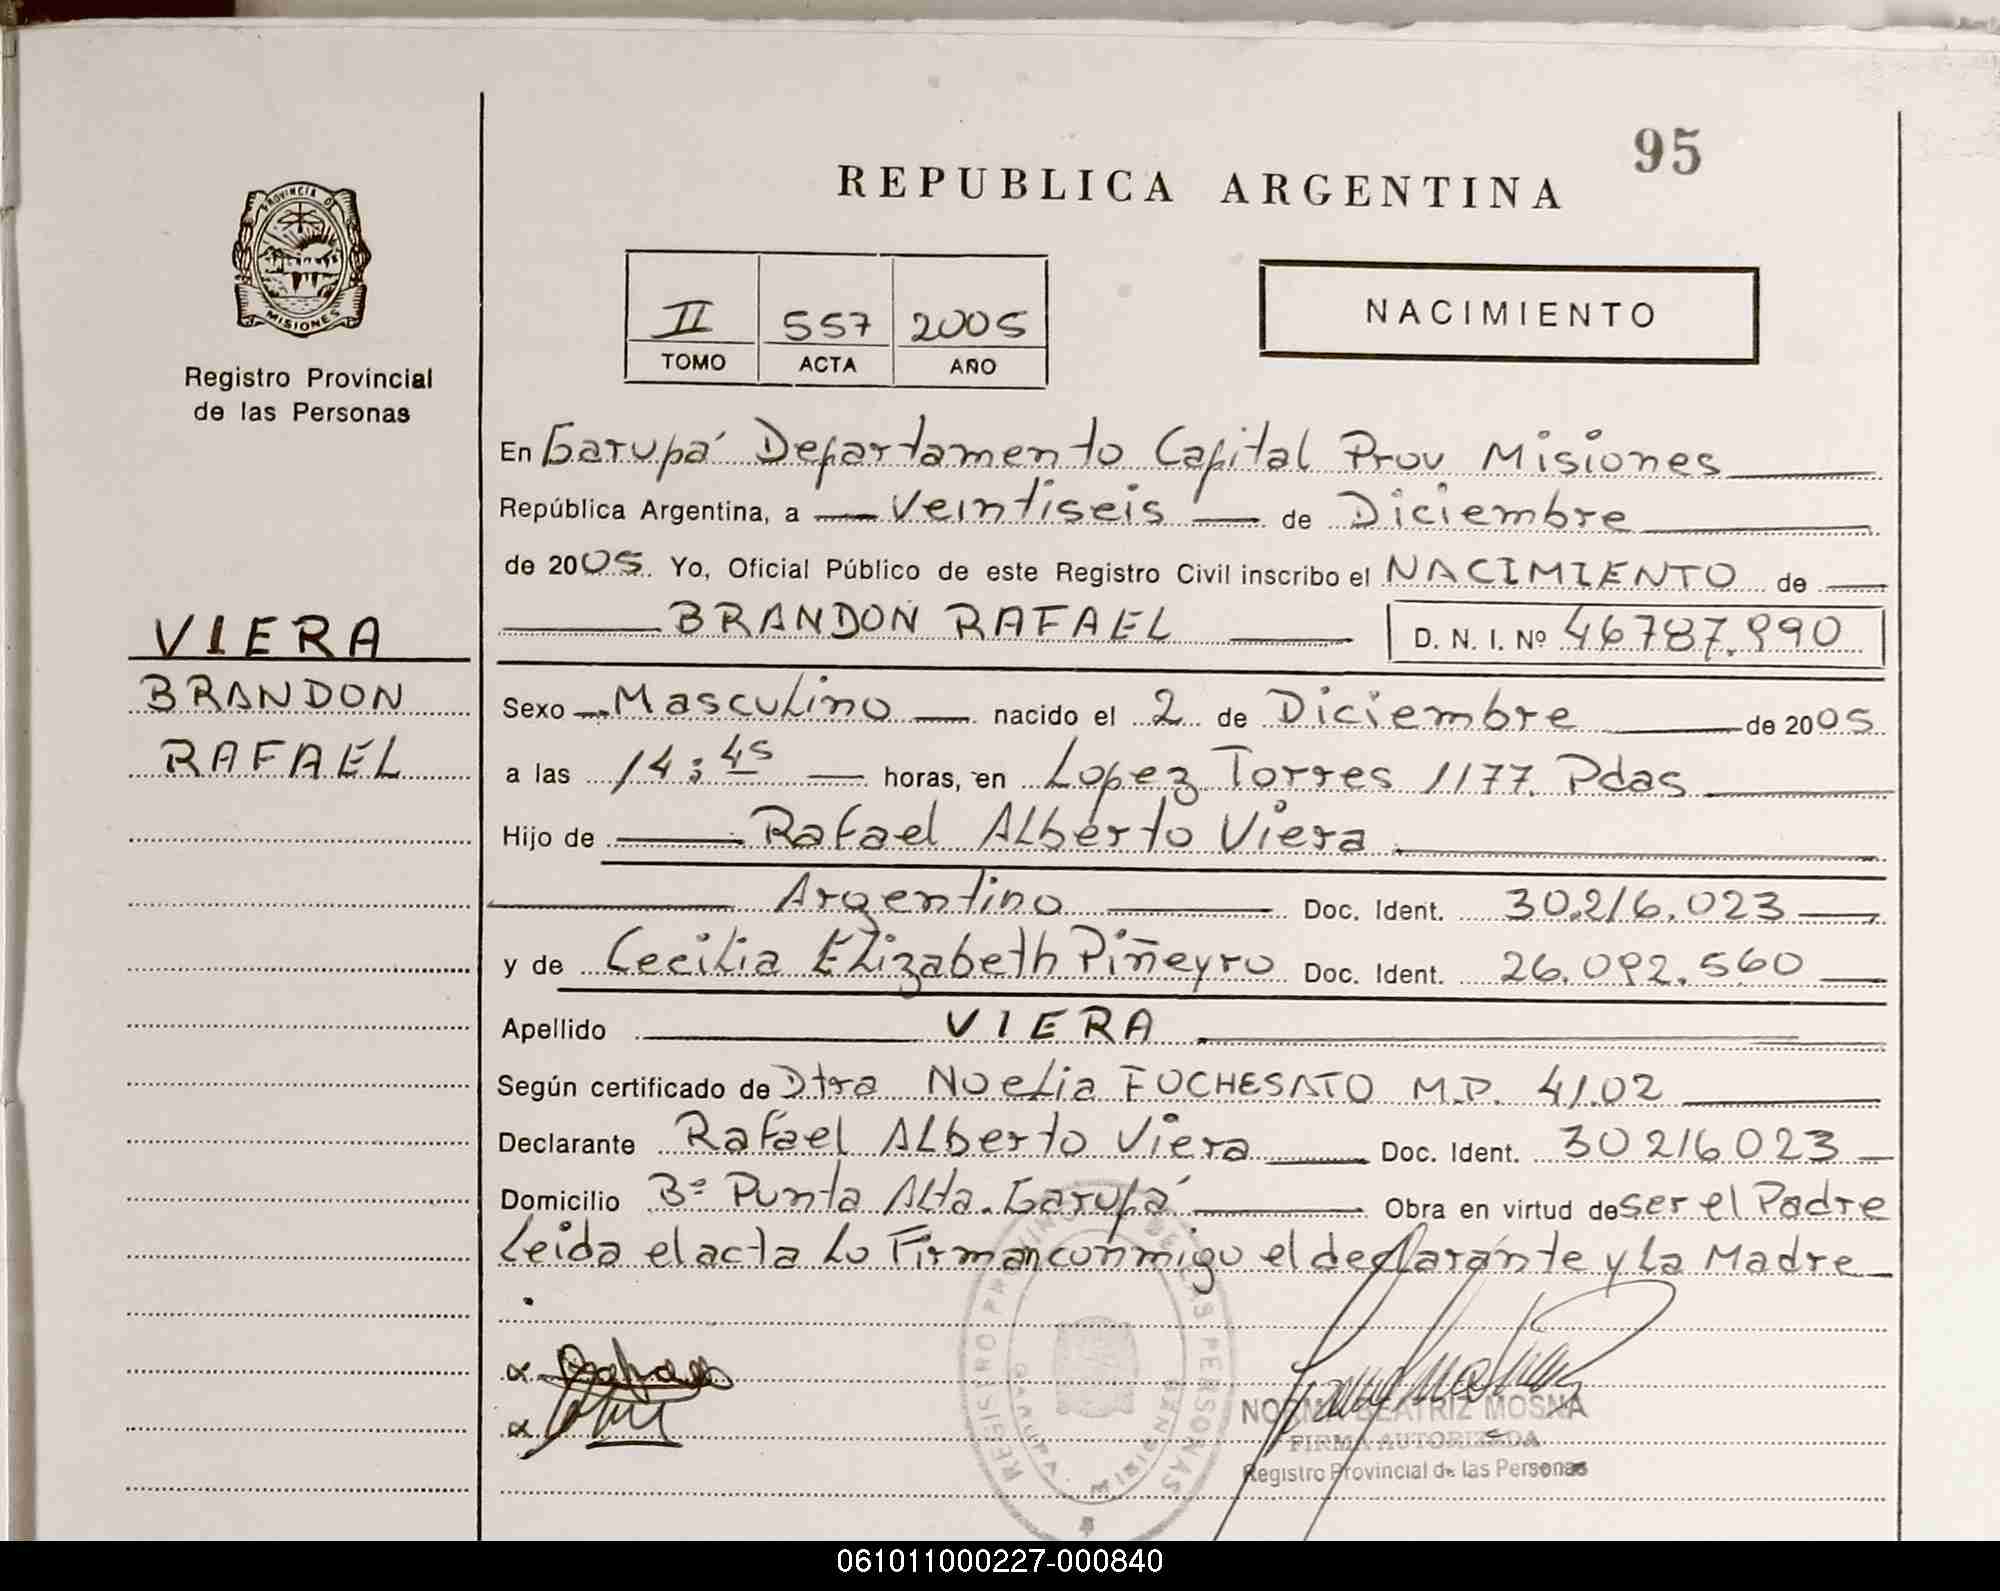 95
REPUBLICA ARGENTINA
PROVINCIA DE
MISIONES
Registro Provincial
de las Personas
II 557 2005
TOMO ACTA AÑO
NACIMIENTO
En Garupá Departamento Capital Prov Misiones
República Argentina, a veintiseis de Diciembre
de 2005. Yo, Oficial Público de este Registro Civil inscribo el NACIMIENTO de
BRANDON RAFAEL D. N. I. Nº 46787.990
VIERA
BRANDON
RAFAEL
Sexo Masculino nacido el 2 de Diciembre de 2005
a las 14:45 horas, en Lopez Torres 1177. Pdas
Hijo de Rafael Alberto Viera
Argentino Doc. Ident. 30.216.023
y de Cecilia Elizabeth Piñeyro Doc. Ident. 26.092.560
Apellido VIERA
Según certificado de Dtra Noelia FOCHESATO M.P. 4102
Declarante Rafael Alberto Viera Doc. Ident. 30216023
Domicilio Bº Punta Alta. Garupá Obra en virtud de ser el Padre
Leida el acta lo Firman conmigo el declarante y la Madre
REGISTRO PROVINCIAL DE LAS PERSONAS
GARUPA
NORMA BEATRIZ MOSNA
FIRMA AUTORIZADA
Registro Provincial de las Personas
061011000227-000840